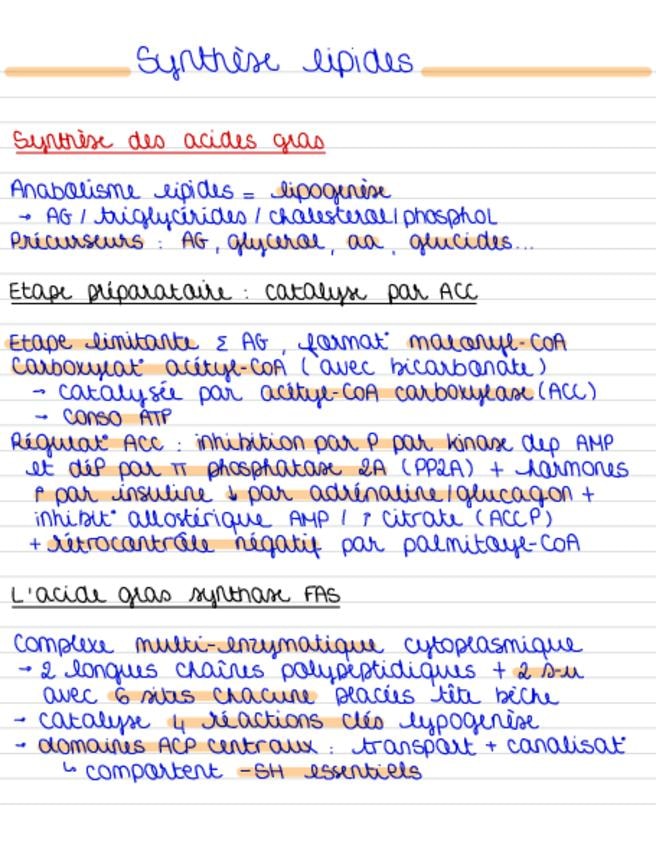 Synthèse lipides
Synthèse des acides gras
Anabolisme lipides = lipogenèse
→ AG / triglycérides / cholesterol / phosphoL
Précurseurs : AG, glycerol, aa, glucides...
Etape préparatoire : catalyse par ACC
Etape limitante Σ AG, format° malonyl-CoA
Carboxylat° acétyl-CoA (avec bicarbonate)
→ catalysée par acétyl-CoA carboxylase (ACC)
→ conso ATP
Régulat° ACC : inhibition par P par kinase dep AMP
et déP par π phosphatase 2A (PP2A) + hormones
↑ par insuline ↓ par adrénaline/glucagon +
inhibit° allostérique AMP / ↑ citrate (ACC P)
+ rétrocontrôle négatif par palmitoyl-CoA
L'acide gras synthase FAS
Complexe multi-enzymatique cytoplasmique
→ 2 longues chaînes polypeptidiques + 2 s-u
avec 6 sites chacune placées tête bèche
→ catalyse 4 réactions clés lypogenèse
→ domaines ACP centraux : transport + canalisat°
↳ comportent -SH essentiels